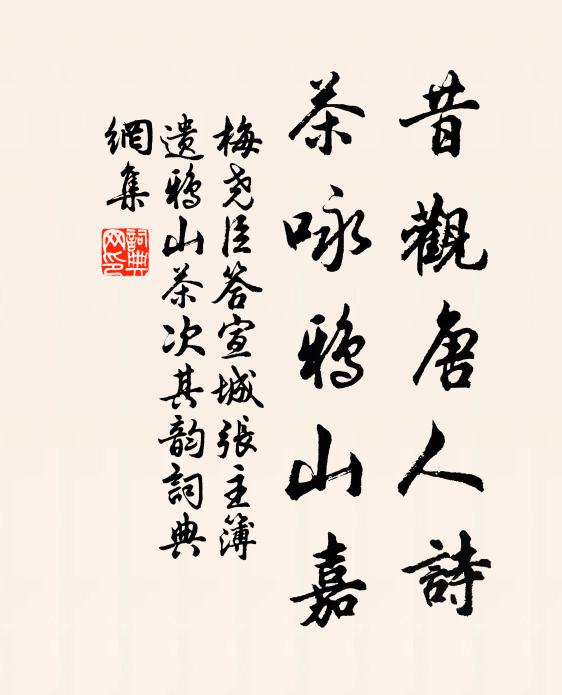 昔觀唐人詩
茶咏鴉山嘉
梅尧臣答宣城張主簿
遗鴉山茶次其韵詞典
網集
詞典
网印